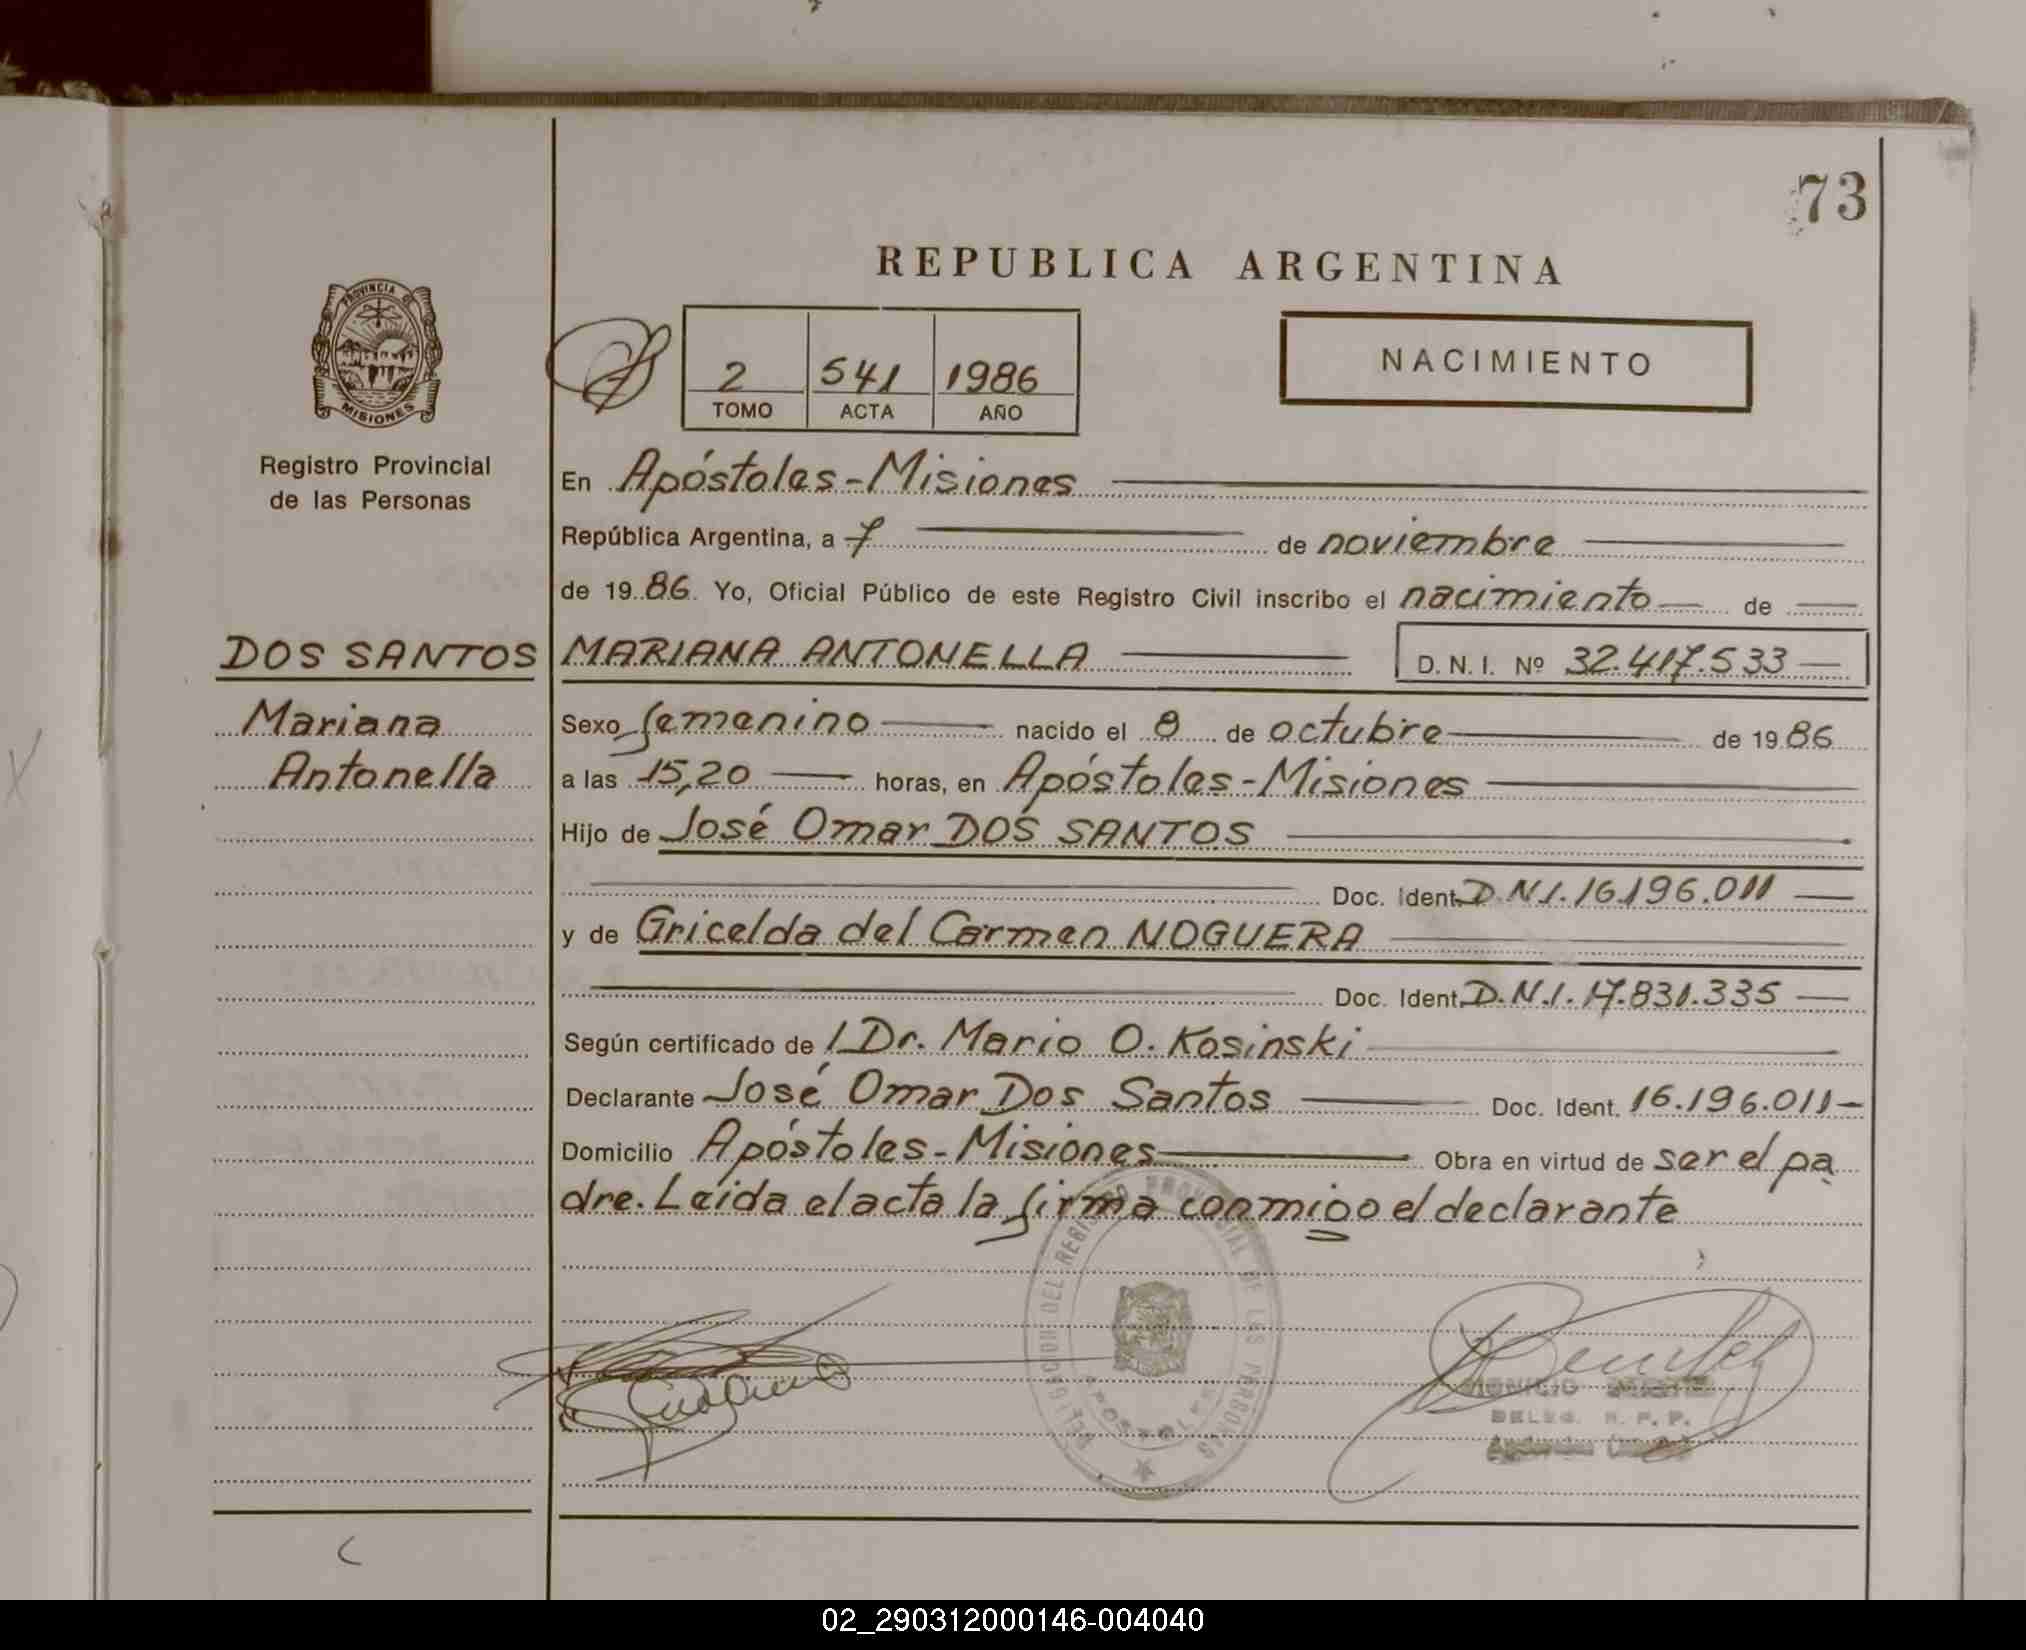 73
REPUBLICA ARGENTINA
PROVINCIA DE
MISIONES
2 541 1986
TOMO ACTA AÑO
NACIMIENTO
Registro Provincial
de las Personas
En Apóstoles-Misiones
República Argentina, a 7 de noviembre
de 19 86 Yo, Oficial Público de este Registro Civil inscribo el nacimiento de
DOS SANTOS MARIANA ANTONELLA D. N. I. Nº 32.417.533
Mariana Sexo femenino nacido el 8 de octubre de 19 86
Antonella a las 15,20 horas, en Apóstoles-Misiones
Hijo de José Omar DOS SANTOS
Doc. Ident. D.N.I. 16.196.011
y de Gricelda del Carmen NOGUERA
Doc. Ident. D.N.I. 17.831.335
Según certificado de Dr. Mario O. Kosinski
Declarante José Omar Dos Santos Doc. Ident. 16.196.011
Domicilio Apóstoles-Misiones Obra en virtud de ser el pa
dre. Leída el acta la firma conmigo el declarante
DELEGACION DEL REGISTRO PROVINCIAL DE LAS PERSONAS
APOSTOLES
DELEG. R. P. P.
02_290312000146-004040